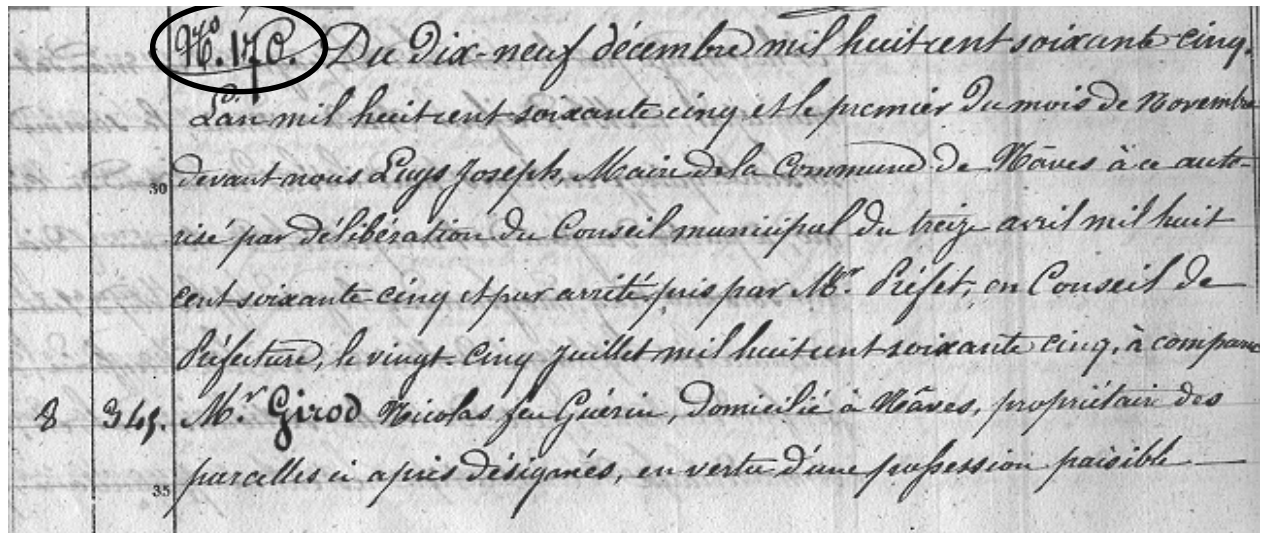 No. 170. Du Dix-neuf décembre mil huit cent soixante cinq.
L'an mil huit cent soixante cinq et le premier du mois de Novembre
devant nous Luys Joseph, Maire de la Commune de Nâves à ce auto-
30 risé par délibération du Conseil municipal du treize avril mil huit
cent soixante cinq et par arrêté pris par Mr. Préfet, en Conseil de
Préfecture, le vingt-cinq juillet mil huit cent soixante cinq, à comparu
8 345. Mr. Girod Nicolas feu Guérin, domicilié à Nâves, propriétaire des
parcelles ci après désignés, en vertu d'une possession paisible
35